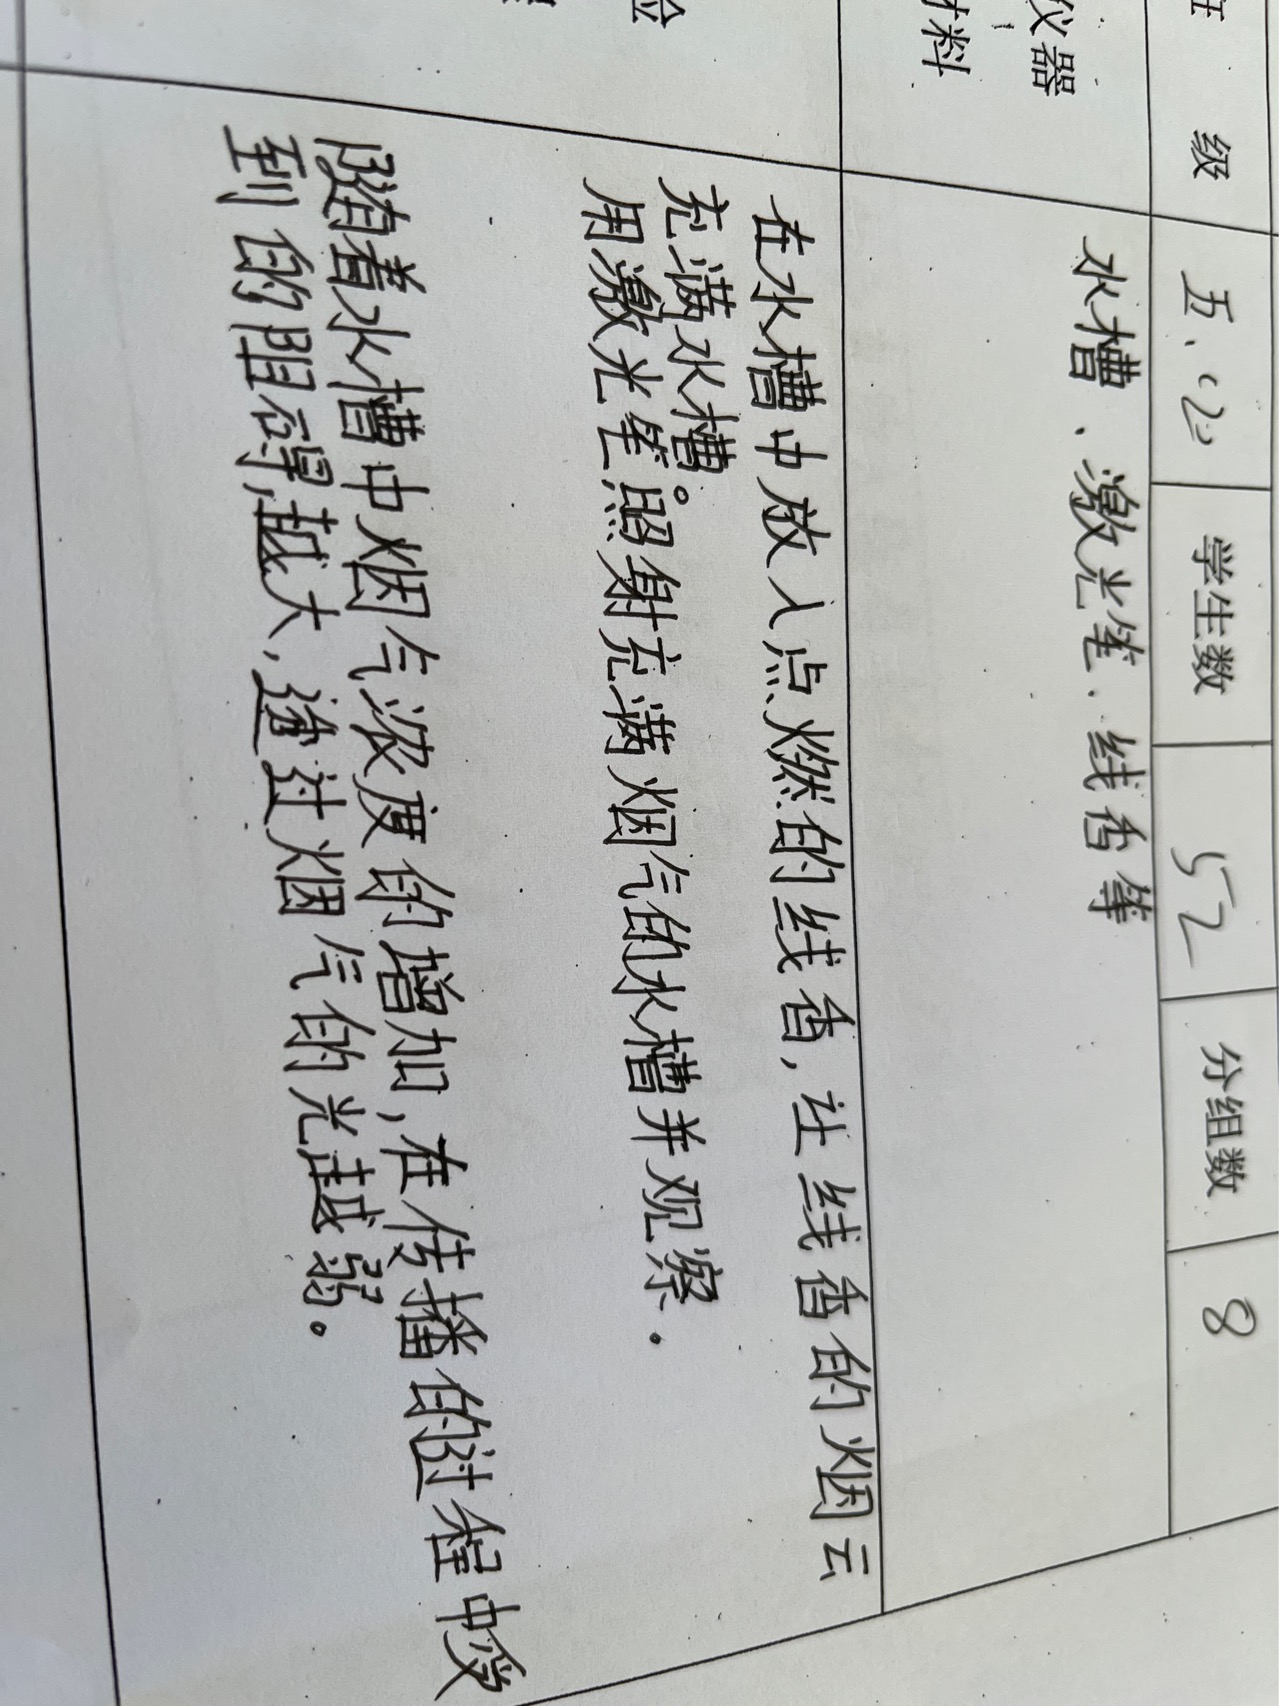 班 级 五、(2) 学生数 52 分组数 8
仪器
材料
水槽、激光笔、线香等
在水槽中放入点燃的线香,让线香的烟云
充满水槽。
用激光笔照射充满烟气的水槽并观察.
验
随着水槽中烟气浓度的增加,在传播的过程中受
到的阻碍越大,透过烟气的光越弱。